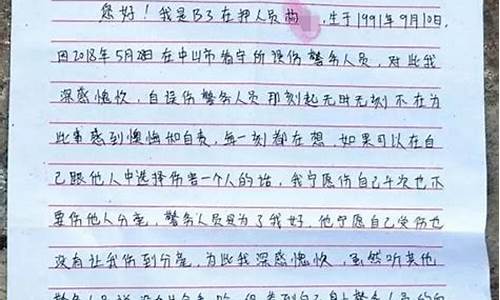 您好！我是B3在押人员曲 ，生于1991年9月10日.
因2018年5月28日在中山市看守所误伤警务人员，对此我
深感愧疚，自误伤警务人员那刻起无时无刻不在为
此事感到懊悔和自责，每一刻都在想，如果可以在自
己跟他人中选择伤害一个人的话，我宁愿伤自己千次也不
要伤他人分毫，警务人员是为了我好，他宁愿自己受伤也
没有让我伤到分毫，为此我深感愧疚，虽然听其他
警务人员说没有什么事